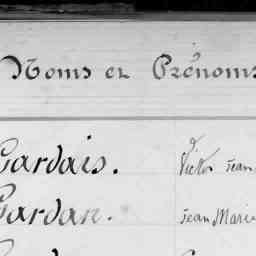 Noms et Prénoms
Cardais. Victor Jean
Cardan. Jean Marie